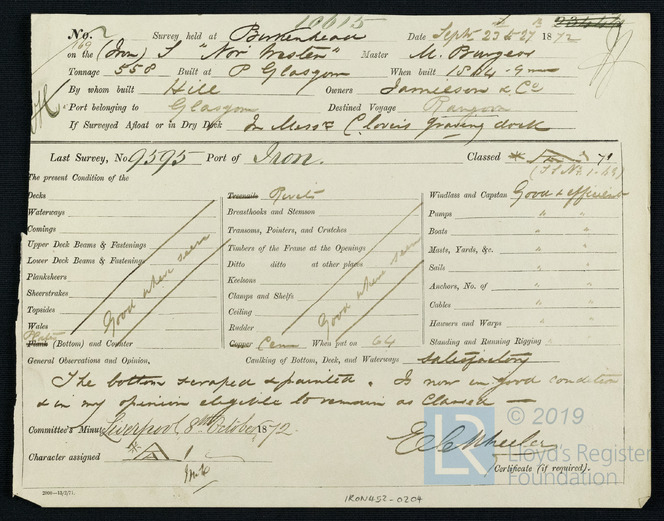 10615
No. 2 Survey held at Birkenhead Date Septr 23 & 27 1872
on the (Iron) S "Nor Wester" Master M. Burgess
Tonnage 558 Built at P Glasgow When built 1864 - 9m
By whom built Hill Owners Jamieson & Co
Port belonging to Glasgow Destined Voyage Rangoon
If Surveyed Afloat or in Dry Dock In Messrs Clover's graving dock
Last Survey, No. 9595 Port of Iron. Classed 71
The present Condition of the
Decks
Waterways
Comings
Upper Deck Beams & Fastenings
Lower Deck Beams & Fastenings
Planksheers
Sheerstrakes
Topsides
Wales
Plank (Bottom) and Counter
Good where seen
Treenails Rivets
Breasthooks and Stemson
Transoms, Pointers, and Crutches
Timbers of the Frame at the Openings
Ditto ditto at other places
Keelsons
Clamps and Shelfs
Ceiling
Rudder
Copper Cem When put on 64
Good where seen
Windlass and Capstan Good & efficient
Pumps "
Boats "
Masts, Yards, &c. "
Sails "
Anchors, No. of "
Cables "
Hawsers and Warps "
Standing and Running Rigging "
General Observations and Opinion, Caulking of Bottom, Deck, and Waterways satisfactory
The bottom scraped & painted. Is now in good condition
& in my opinion eligible to remain as Classed —
Committee's Minute Liverpool, 8th October 1872.
Character assigned A 1
E C Wheeler
Certificate (if required).
2000—13/2/71.
IRON452-0204
© 2019
LR
Lloyd's Register
Foundation